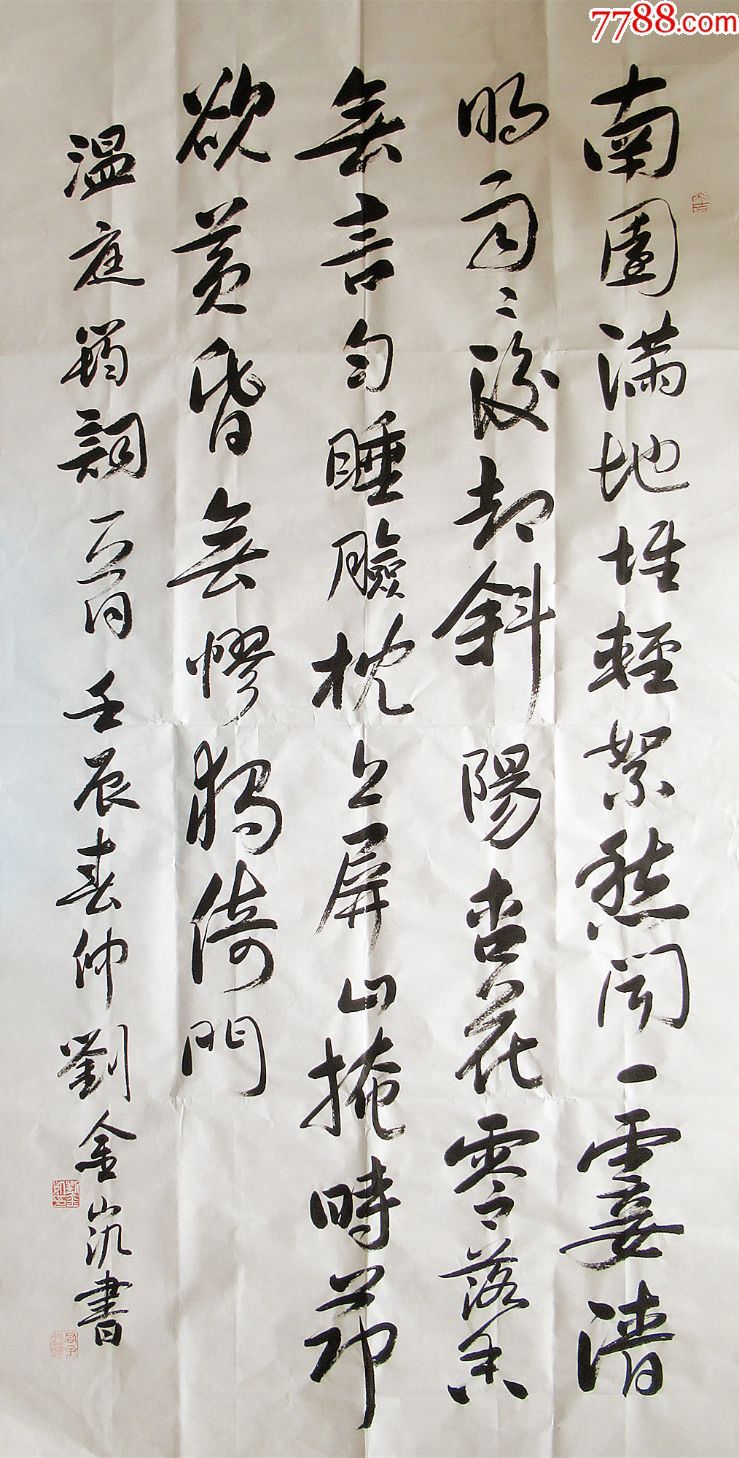 7788.com
南園滿地堆輕絮愁聞一霎清
明雨〻後却斜陽杏花零落香
無言勻睡臉枕上屏山掩時節
欲黄昏無憀獨倚門
溫庭筠詞一首壬辰春仲劉金書